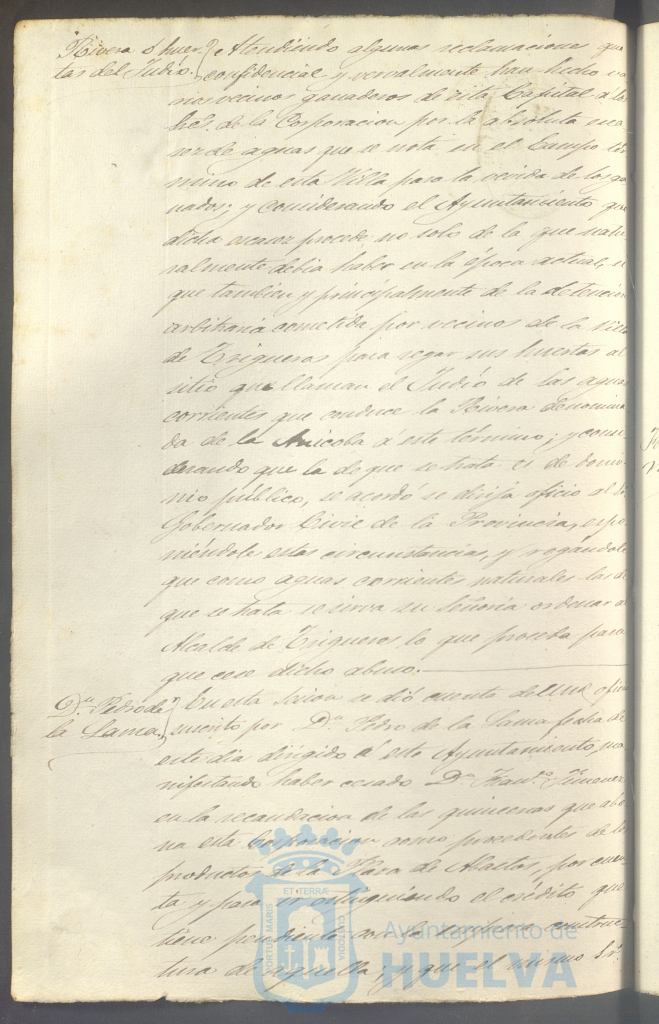 Rivera ó huer-
tas del Judio.
Atendiendo algunas reclamaciones que
confidencial y vervalmente han hecho va
rios vecinos ganaderos de esta Capital a los
de la Corporacion por la absoluta esca
sez de aguas que se nota en el Campo tér
mino de esta Villa para la vevida de los ga
nados; y considerando el Ayuntamiento que
dicha escasez procede no solo de la que natu
ralmente debia haber en la época actual, si
que tambien y principalmente de la detencion
arbitraria cometida por vecinos de la Villa
de Trigueros para regar sus huertas al
sitio que llaman el Judio de las aguas
corrientes que conduce la Rivera denomina
da de la Anicoba a este término; y consi-
derando que la de que se trata es de domi-
nio público, se acordó se dirija oficio al Sr.
Gobernador Civil de la Provincia, espo
niéndole estas circunstancias, y rogándole
que como aguas corrientes naturales las de
que se trata se sirva su Señoria ordenar al
Alcalde de Trigueros lo que proceda para
que cese dicho abuso.
Dn. Pedro de
la Lama.
En esta Sesion se dió cuenta de una ofi
suscrito por Dn. Pedro de la Lama fecha de
este dia dirigido á este Ayuntamiento, ma
nifestando haber cesado Dn. Franco. Jimenez
en la recaudacion de las quincenas que abo
na esta Corporacion como procedentes de los
productos de la Plaza de Abastos, por cuen
ta y para ir estinguiendo el crédito que
tiene pendiente con la construc-
tura de aquella; y que el mismo Sr.
PORTUS MARIS
ET TERRÆ
CUSTODIA
Ayuntamiento de
HUELVA